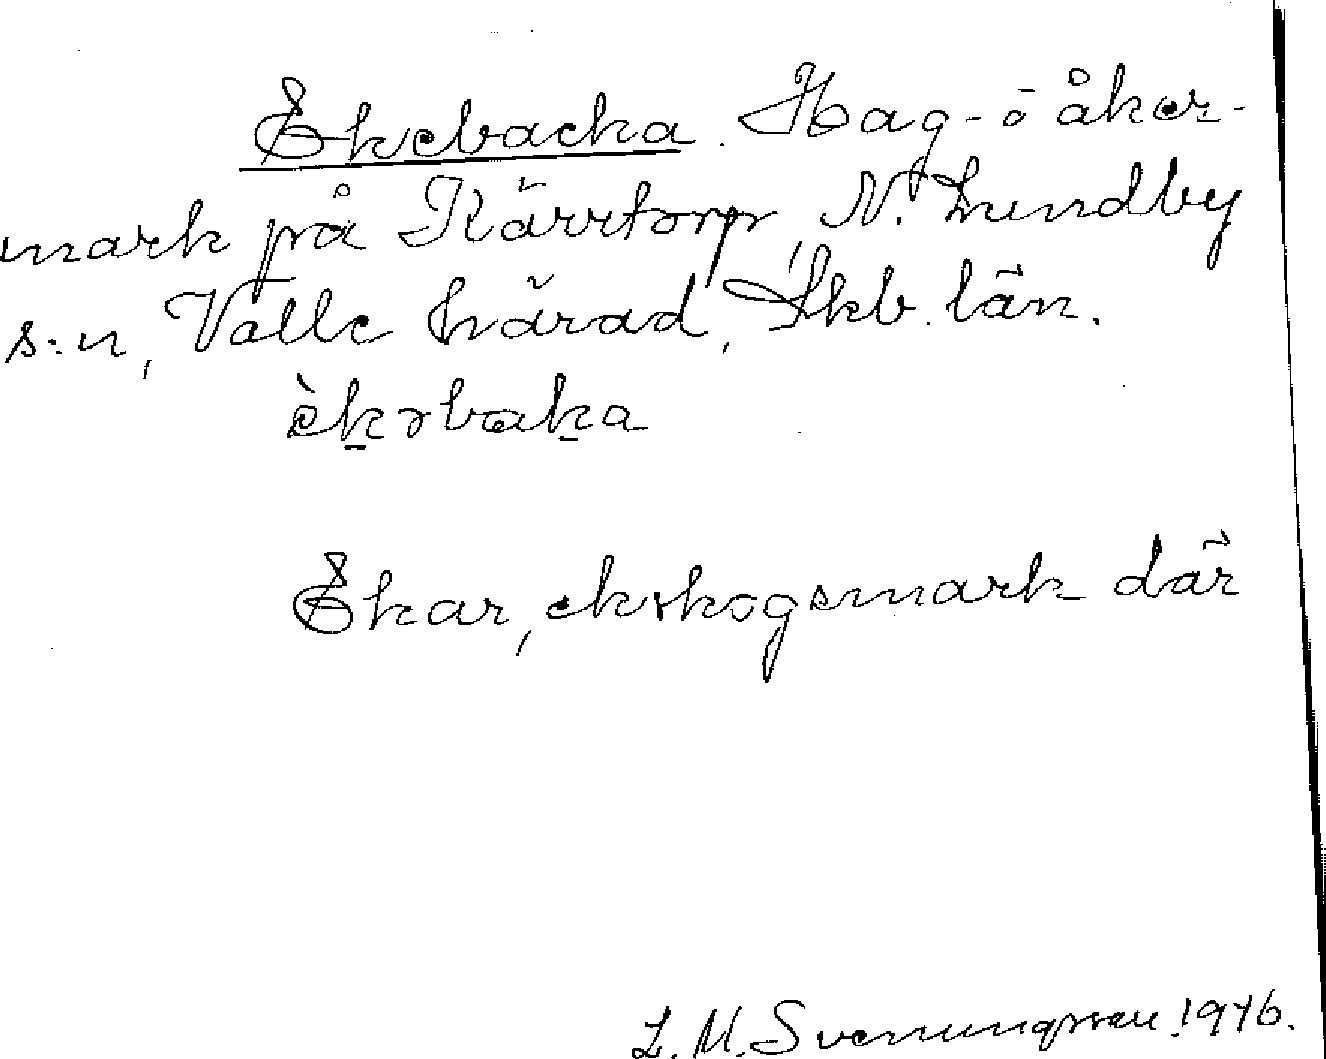 Ekebacka. Hag- o åker-
mark på Kärrtorp, N. Lundby
s:n, Valle härad, Skb. län.
èk̠ɘbak̠a
Ekar, ekskogsmark där
L. M. Svenungsson 1946.